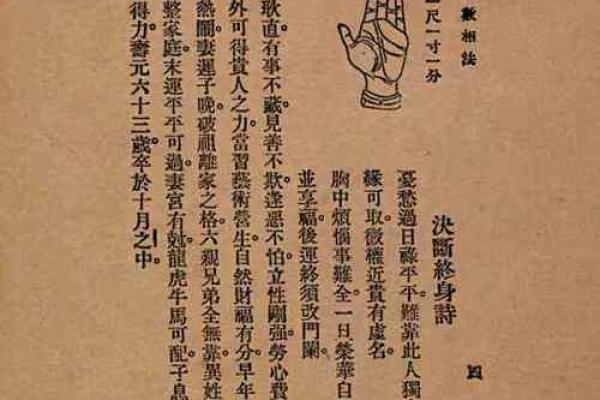 數相法
四
尺一寸一分
決斷終身詩
憂愁過日祿平平。難靠此人獨
緣可取。微權近貴有虛名。
胸中煩惱事難全。一日榮華白
並享福。後運終須改門闌。
耿直。有事不藏。見善不欺。逢惡不怕。立性剛强。勞心費
外可得貴人之力。當習藝術營生。自然財福有分。早年
熱鬧。妻遲子晚。破祖離家之格。六親兄弟全無靠。異姓
整家庭。末運平平可過。妻宮有尅。龍虎牛馬可配。子息
得力。壽元六十三歲。卒於十月之中。